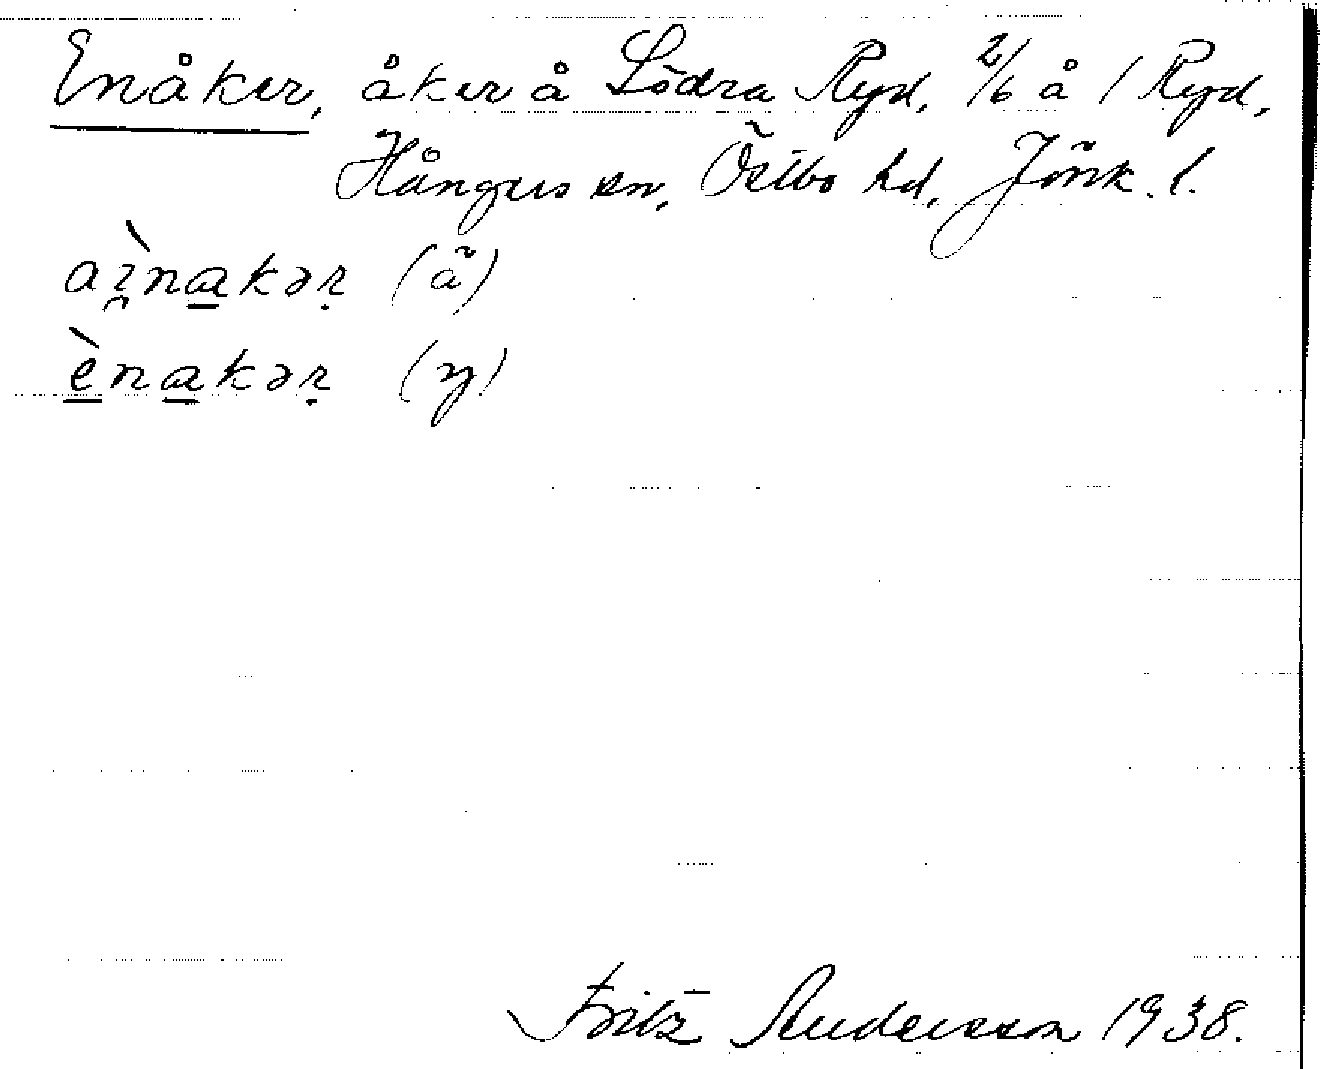 Enåker, åker å Södra Ryd, 2/6 å 1 Ryd,
Hångers sn, Östbo hd, Jönk. l.
aı̯̀nakər̩ (ä)
ènakər̩ (y)
Fritz Andersson 1938.